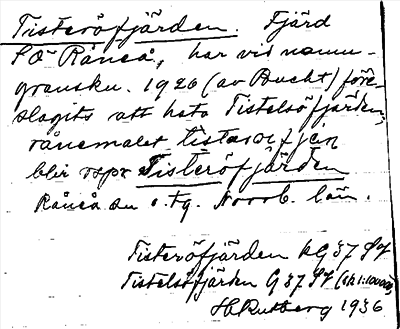 Tisteröfjärden Fjärd
SO Råneå, har vid namn-
gransku. 1926 (av Bucht) före-
slagits att heta Tistelsöfjärden,
rånemålet
blir rspr Tisteröfjärden
Råneå sn o. tg. Norrb. län.
Tisteröfjärden kG 37
Tistelsöfjärden G 37
H Rutberg 1936